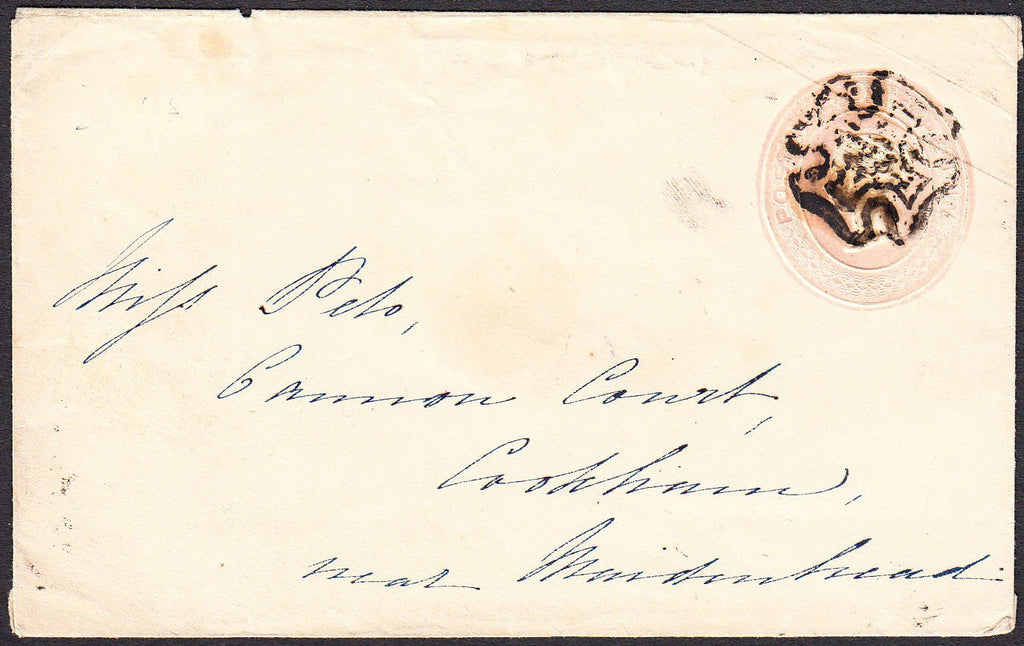 POS
Miss Peto,
Cannon Court,
Cookham,
near Maidenhead.